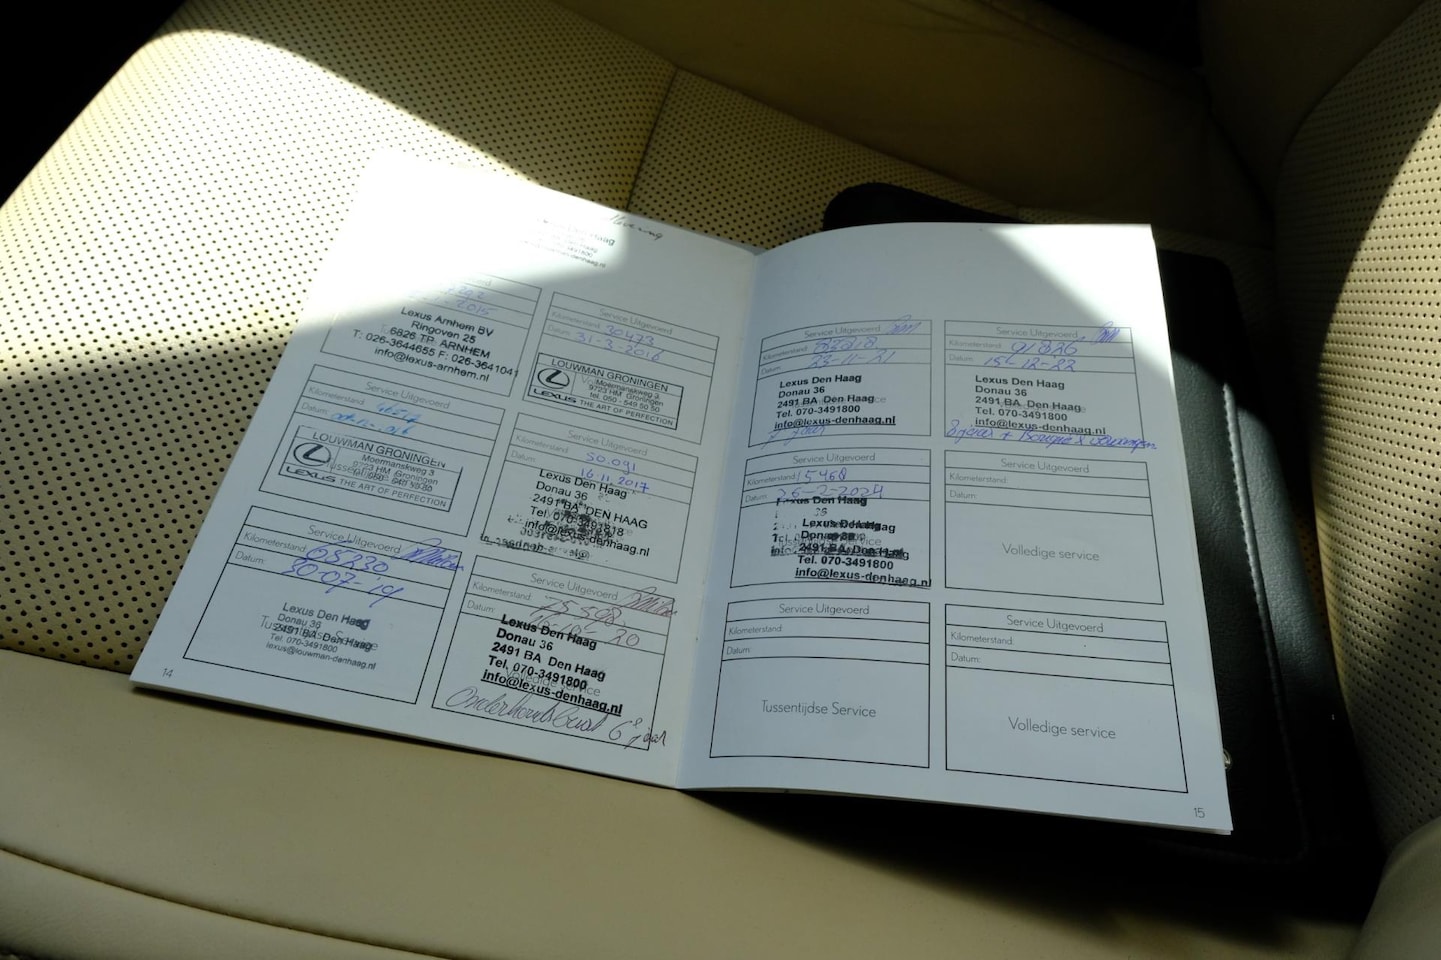 info@lexus-denhaag.nl
Lexus Arnhem BV
Ringoven 25
6826 TP ARNHEM
T: 026-3644655 F: 026-3641041
info@lexus-arnhem.nl
Service Uitgevoerd
Kilometerstand: 30473
Datum: 31-3-2016
LOUWMAN GRONINGEN
Moermanskweg 3
9723 HM Groningen
tel. 050 - 549 50 50
LEXUS THE ART OF PERFECTION
Service Uitgevoerd
Kilometerstand:
Datum:
LOUWMAN GRONINGEN
Moermanskweg 3
9723 HM Groningen
LEXUS THE ART OF PERFECTION
Service Uitgevoerd
Kilometerstand: 50.091
Datum: 16-11-2017
Lexus Den Haag
Donau 36
2491 BA DEN HAAG
info@lexus-denhaag.nl
Service Uitgevoerd
Kilometerstand: 65230
Datum: 30-07-19
Lexus Den Haag
Donau 36
2491 BA Den Haag
Tel. 070-3491800
lexus@louwman-denhaag.nl
Service Uitgevoerd
Kilometerstand: 75598
Datum:
Lexus Den Haag
Donau 36
2491 BA Den Haag
Tel. 070-3491800
info@lexus-denhaag.nl
14
Service Uitgevoerd
Kilometerstand:
Datum: 23-11-21
Lexus Den Haag
Donau 36
2491 BA Den Haag
Tel. 070-3491800
info@lexus-denhaag.nl
7 jaar
Service Uitgevoerd
Kilometerstand: 91826
Datum: 15-12-22
Lexus Den Haag
Donau 36
2491 BA Den Haag
Tel. 070-3491800
info@lexus-denhaag.nl
Service Uitgevoerd
Kilometerstand:
Datum: 26-2-2024
Lexus Den Haag
Donau 36
2491 BA Den Haag
Tel. 070-3491800
info@lexus-denhaag.nl
Service Uitgevoerd
Kilometerstand:
Datum:
Volledige service
Service Uitgevoerd
Kilometerstand:
Datum:
Tussentijdse Service
Service Uitgevoerd
Kilometerstand:
Datum:
Volledige service
15